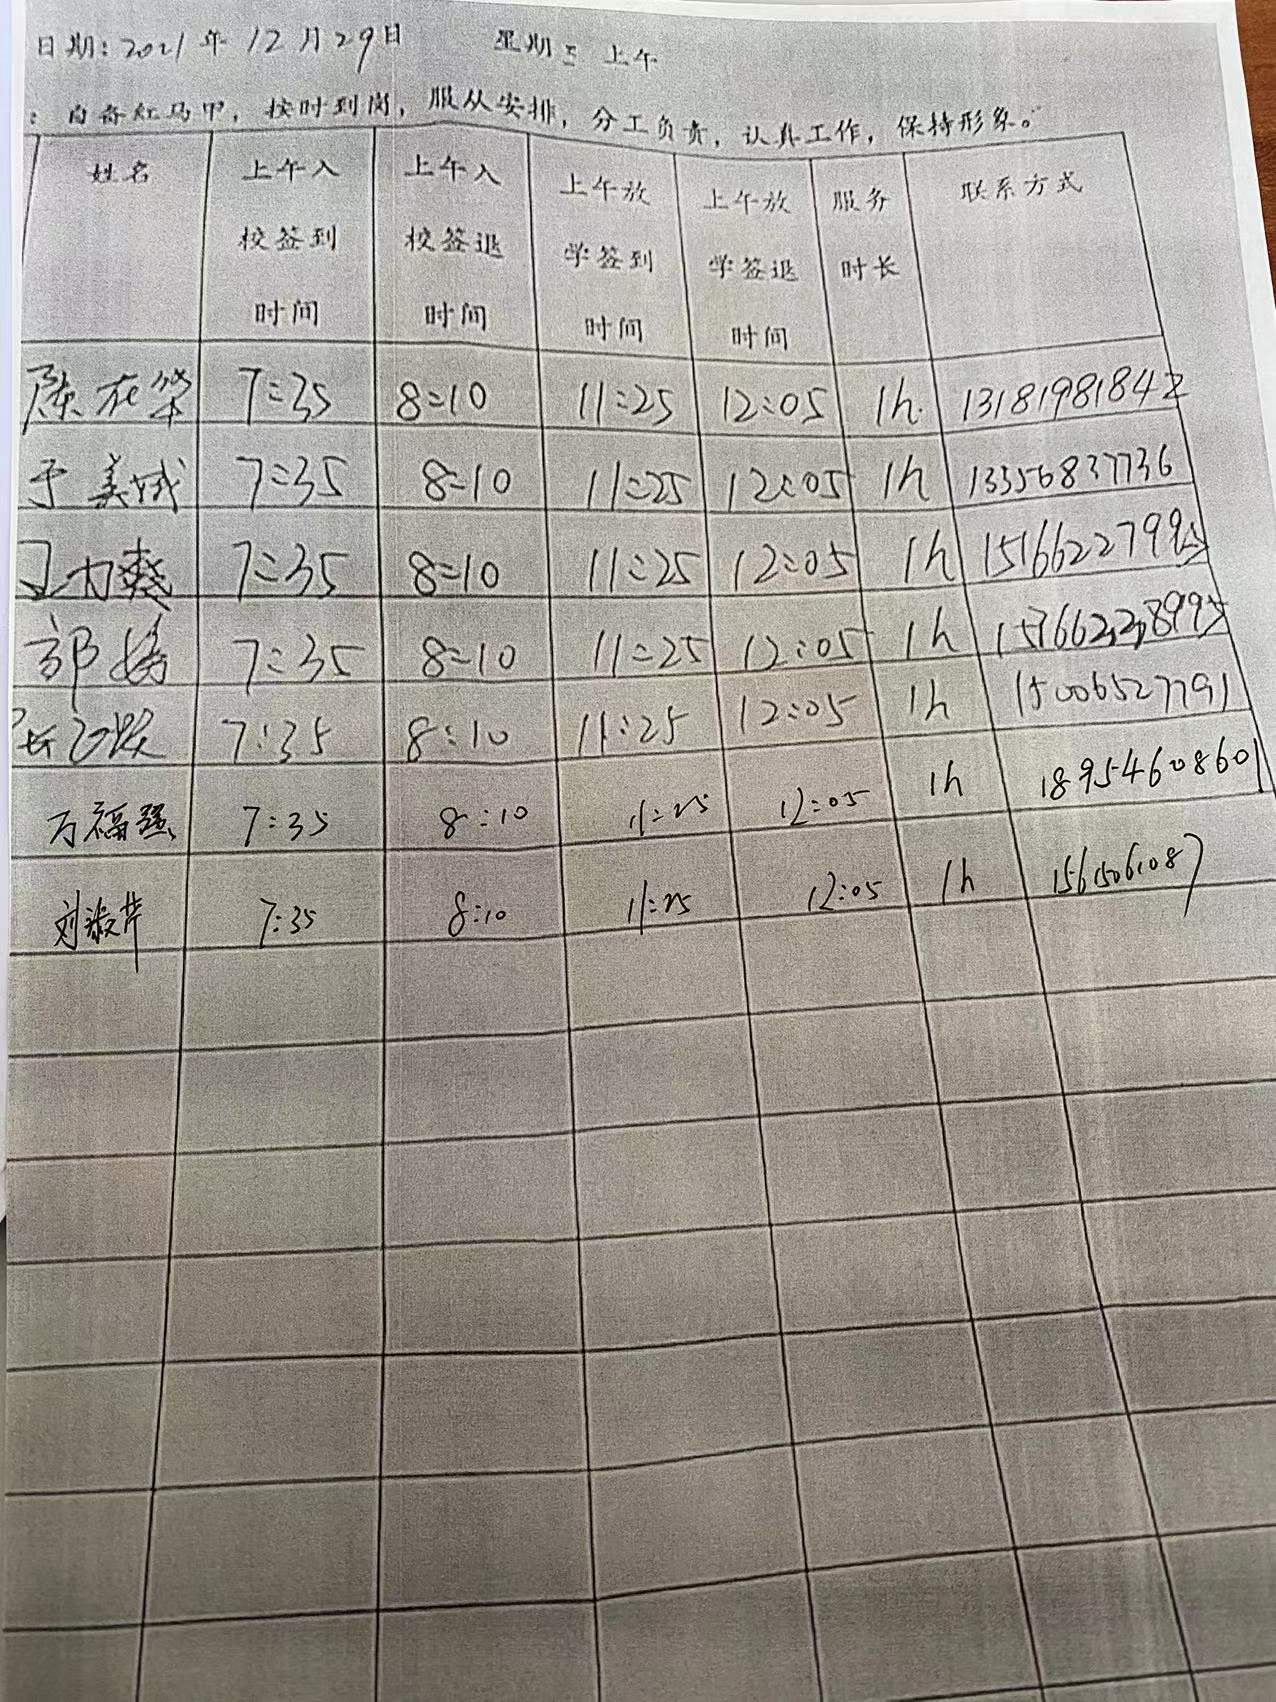 日期: 2021 年 12 月 29 日 星期三 上午
: 自备红马甲, 按时到岗, 服从安排, 分工负责, 认真工作, 保持形象。
姓名 上午入校签到时间 上午入校签退时间 上午放学签到时间 上午放学签退时间 服务时长 联系方式
陈在华 7:35 8:10 11:25 12:05 1h. 13181981842
于美城 7:35 8:10 11:25 12:05 1h 13356837736
7:35 8:10 11:25 12:05 1h
郭娟 7:35 8:10 11:25 12:05 1h
7:35 8:10 11:25 12:05 1h 15006527791
万福强 7:35 8:10 11:25 12:05 1h 18954608601
刘淑芹 7:35 8:10 11:25 12:05 1h 15615061087